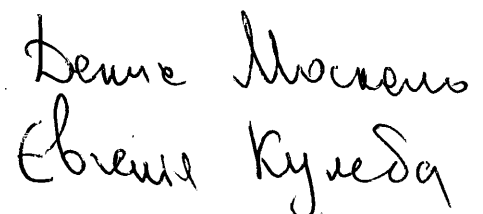 Денис Москаль
Євгенія Кулеба